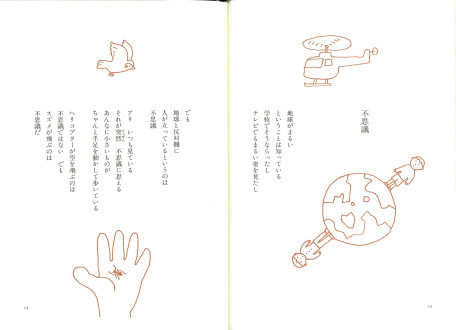 不思議
地球がまるい
ということは知っている
学校でそうならったし
テレビでもまるい姿を見たし
でも
地球と反対側に
人が立っているというのは
不思議
アリ いつも見ている
それが突然 不思議に思える
あんなに小さいものが
ちゃんと手足を動かして歩いている
ヘリコプターが空を飛ぶのは
不思議ではない でも
スズメが飛ぶのは
不思議だ
12
13